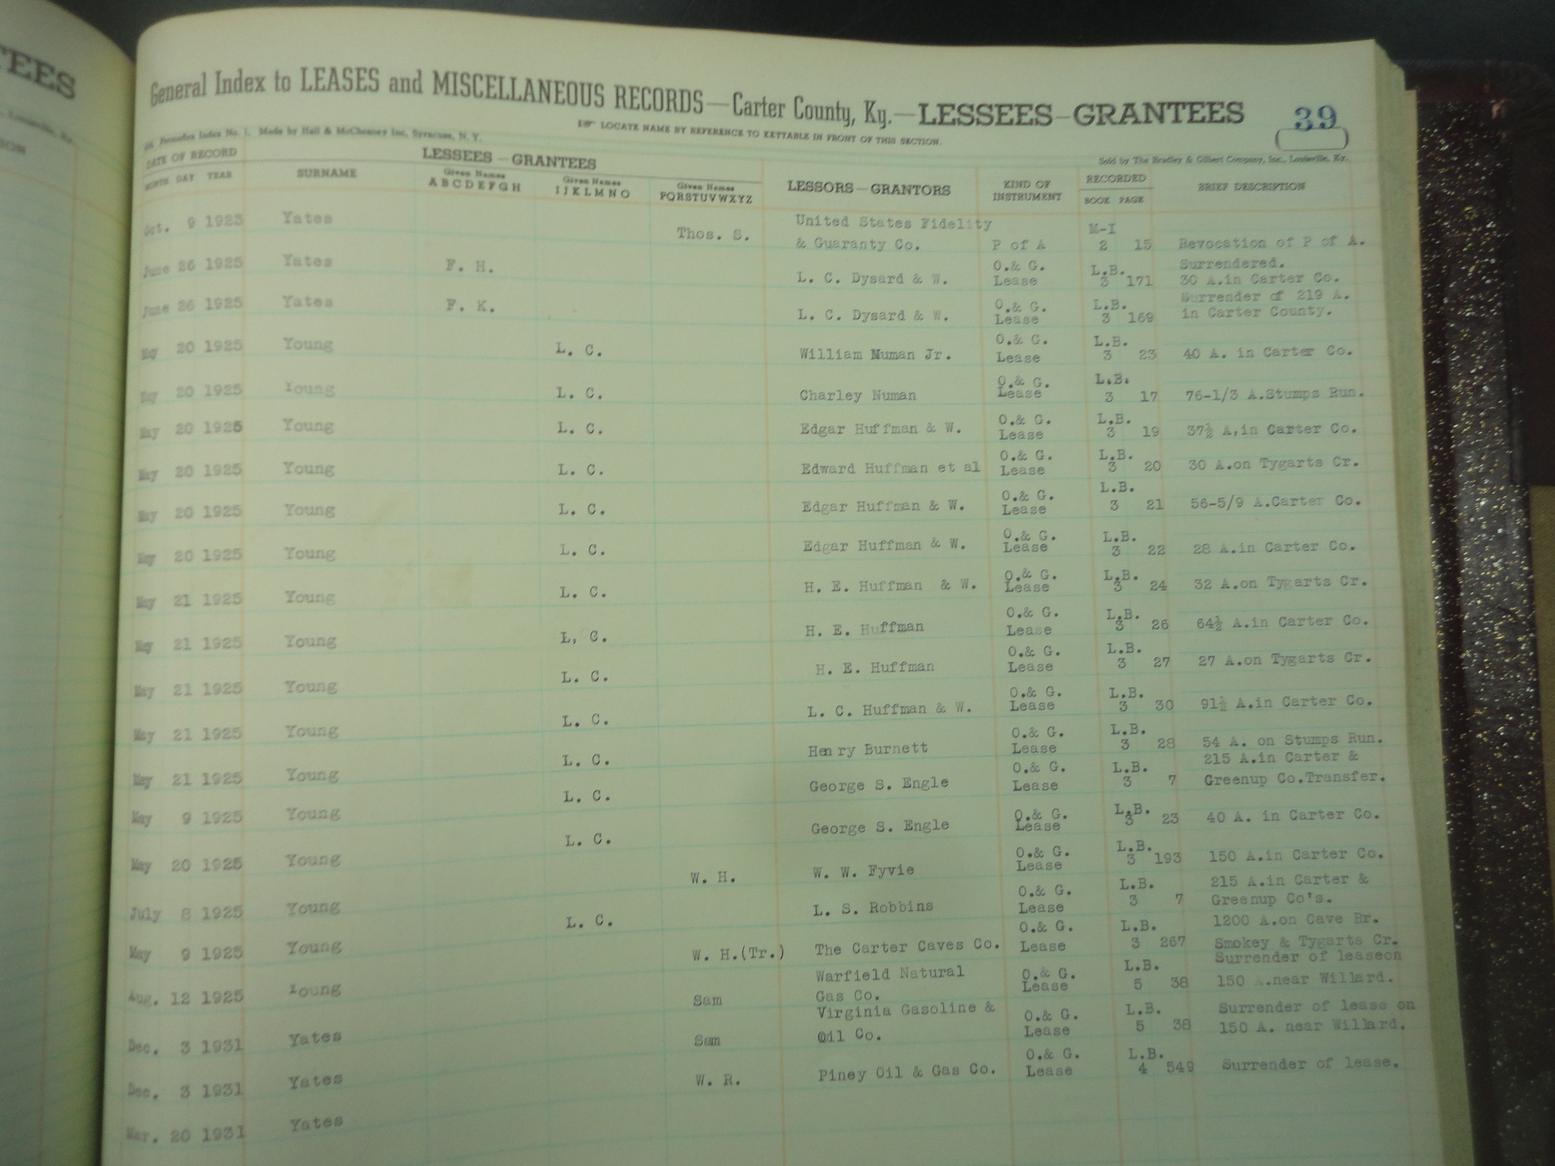 TEES
General Index to LEASES and MISCELLANEOUS RECORDS—Carter County, Ky.—LESSEES—GRANTEES 39
LOCATE NAME BY REFERENCE TO KEYTABLE IN FRONT OF THIS SECTION.
Index No. 1. Made by Hall & McChesney Inc, Syracuse, N. Y.
Sold by The Bradley & Gilbert Company, Inc., Louisville, Ky.
DATE OF RECORD LESSEES—GRANTEES LESSORS—GRANTORS KIND OF INSTRUMENT RECORDED BRIEF DESCRIPTION
MONTH DAY YEAR SURNAME Given Names ABCDEFGH Given Names IJKLMNO Given Names PQRSTUVWXYZ BOOK PAGE
Oct. 9 1925 Yates Thos. S. United States Fidelity M-I
& Guaranty Co. P of A 2 15 Revocation of P of A.
June 26 1925 Yates F. H. O.& G. L.B. Surrendered.
L. C. Dysard & W. Lease 3 171 30 A.in Carter Co.
June 26 1925 Yates F. K. O.& G. L.B. Surrender of 219 A.
L. C. Dysard & W. Lease 3 169 in Carter County.
May 20 1925 Young L. C. William Numan Jr. O.& G. Lease L.B. 3 23 40 A. in Carter Co.
May 20 1925 Young L. C. Charley Numan O.& G. Lease L.B. 3 17 76-1/3 A.Stumps Run.
May 20 1925 Young L. C. Edgar Huffman & W. O.& G. Lease L.B. 3 19 37½ A,in Carter Co.
May 20 1925 Young L. C. Edward Huffman et al O.& G. Lease L.B. 3 20 30 A.on Tygarts Cr.
May 20 1925 Young L. C. Edgar Huffman & W. O.& G. Lease L.B. 3 21 56-5/9 A.Carter Co.
May 20 1925 Young L. C. Edgar Huffman & W. O.& G. Lease L.B. 3 22 28 A.in Carter Co.
May 21 1925 Young L. C. H. E. Huffman & W. O.& G. Lease L.B. 3 24 32 A.on Tygarts Cr.
May 21 1925 Young L, C. H. E. Huffman O.& G. Lease L.B. 3 26 64½ A.in Carter Co.
May 21 1925 Young L. C. H. E. Huffman O.& G. Lease L.B. 3 27 27 A.on Tygarts Cr.
May 21 1925 Young L. C. L. C. Huffman & W. O.& G. Lease L.B. 3 30 91½ A.in Carter Co.
May 21 1925 Young L. C. Henry Burnett O.& G. Lease L.B. 3 28 54 A. on Stumps Run.
May 9 1925 Young L. C. George S. Engle O.& G. Lease L.B. 3 7 215 A.in Carter &
Greenup Co.Transfer.
May 20 1925 Young L. C. George S. Engle O.& G. Lease L.B. 3 23 40 A. in Carter Co.
July 8 1925 Young W. H. W. W. Fyvie O.& G. Lease L.B. 3 193 150 A.in Carter Co.
May 9 1925 Young L. C. L. S. Robbins O.& G. Lease L.B. 3 7 215 A.in Carter &
Greenup Co's.
Aug. 12 1925 Young W. H.(Tr.) The Carter Caves Co. O.& G. Lease L.B. 3 267 1200 A.on Cave Br.
Smokey & Tygarts Cr.
Dec. 3 1931 Yates Sam Warfield Natural O.& G. L.B. Surrender of leaseon
Gas Co. Lease 5 38 150 A.near Willard.
Dec. 3 1931 Yates Sam Virginia Gasoline & O.& G. L.B. Surrender of lease on
Oil Co. Lease 5 38 150 A. near Willard.
Mar. 20 1931 Yates W. R. Piney Oil & Gas Co. O.& G. Lease L.B. 4 549 Surrender of lease.